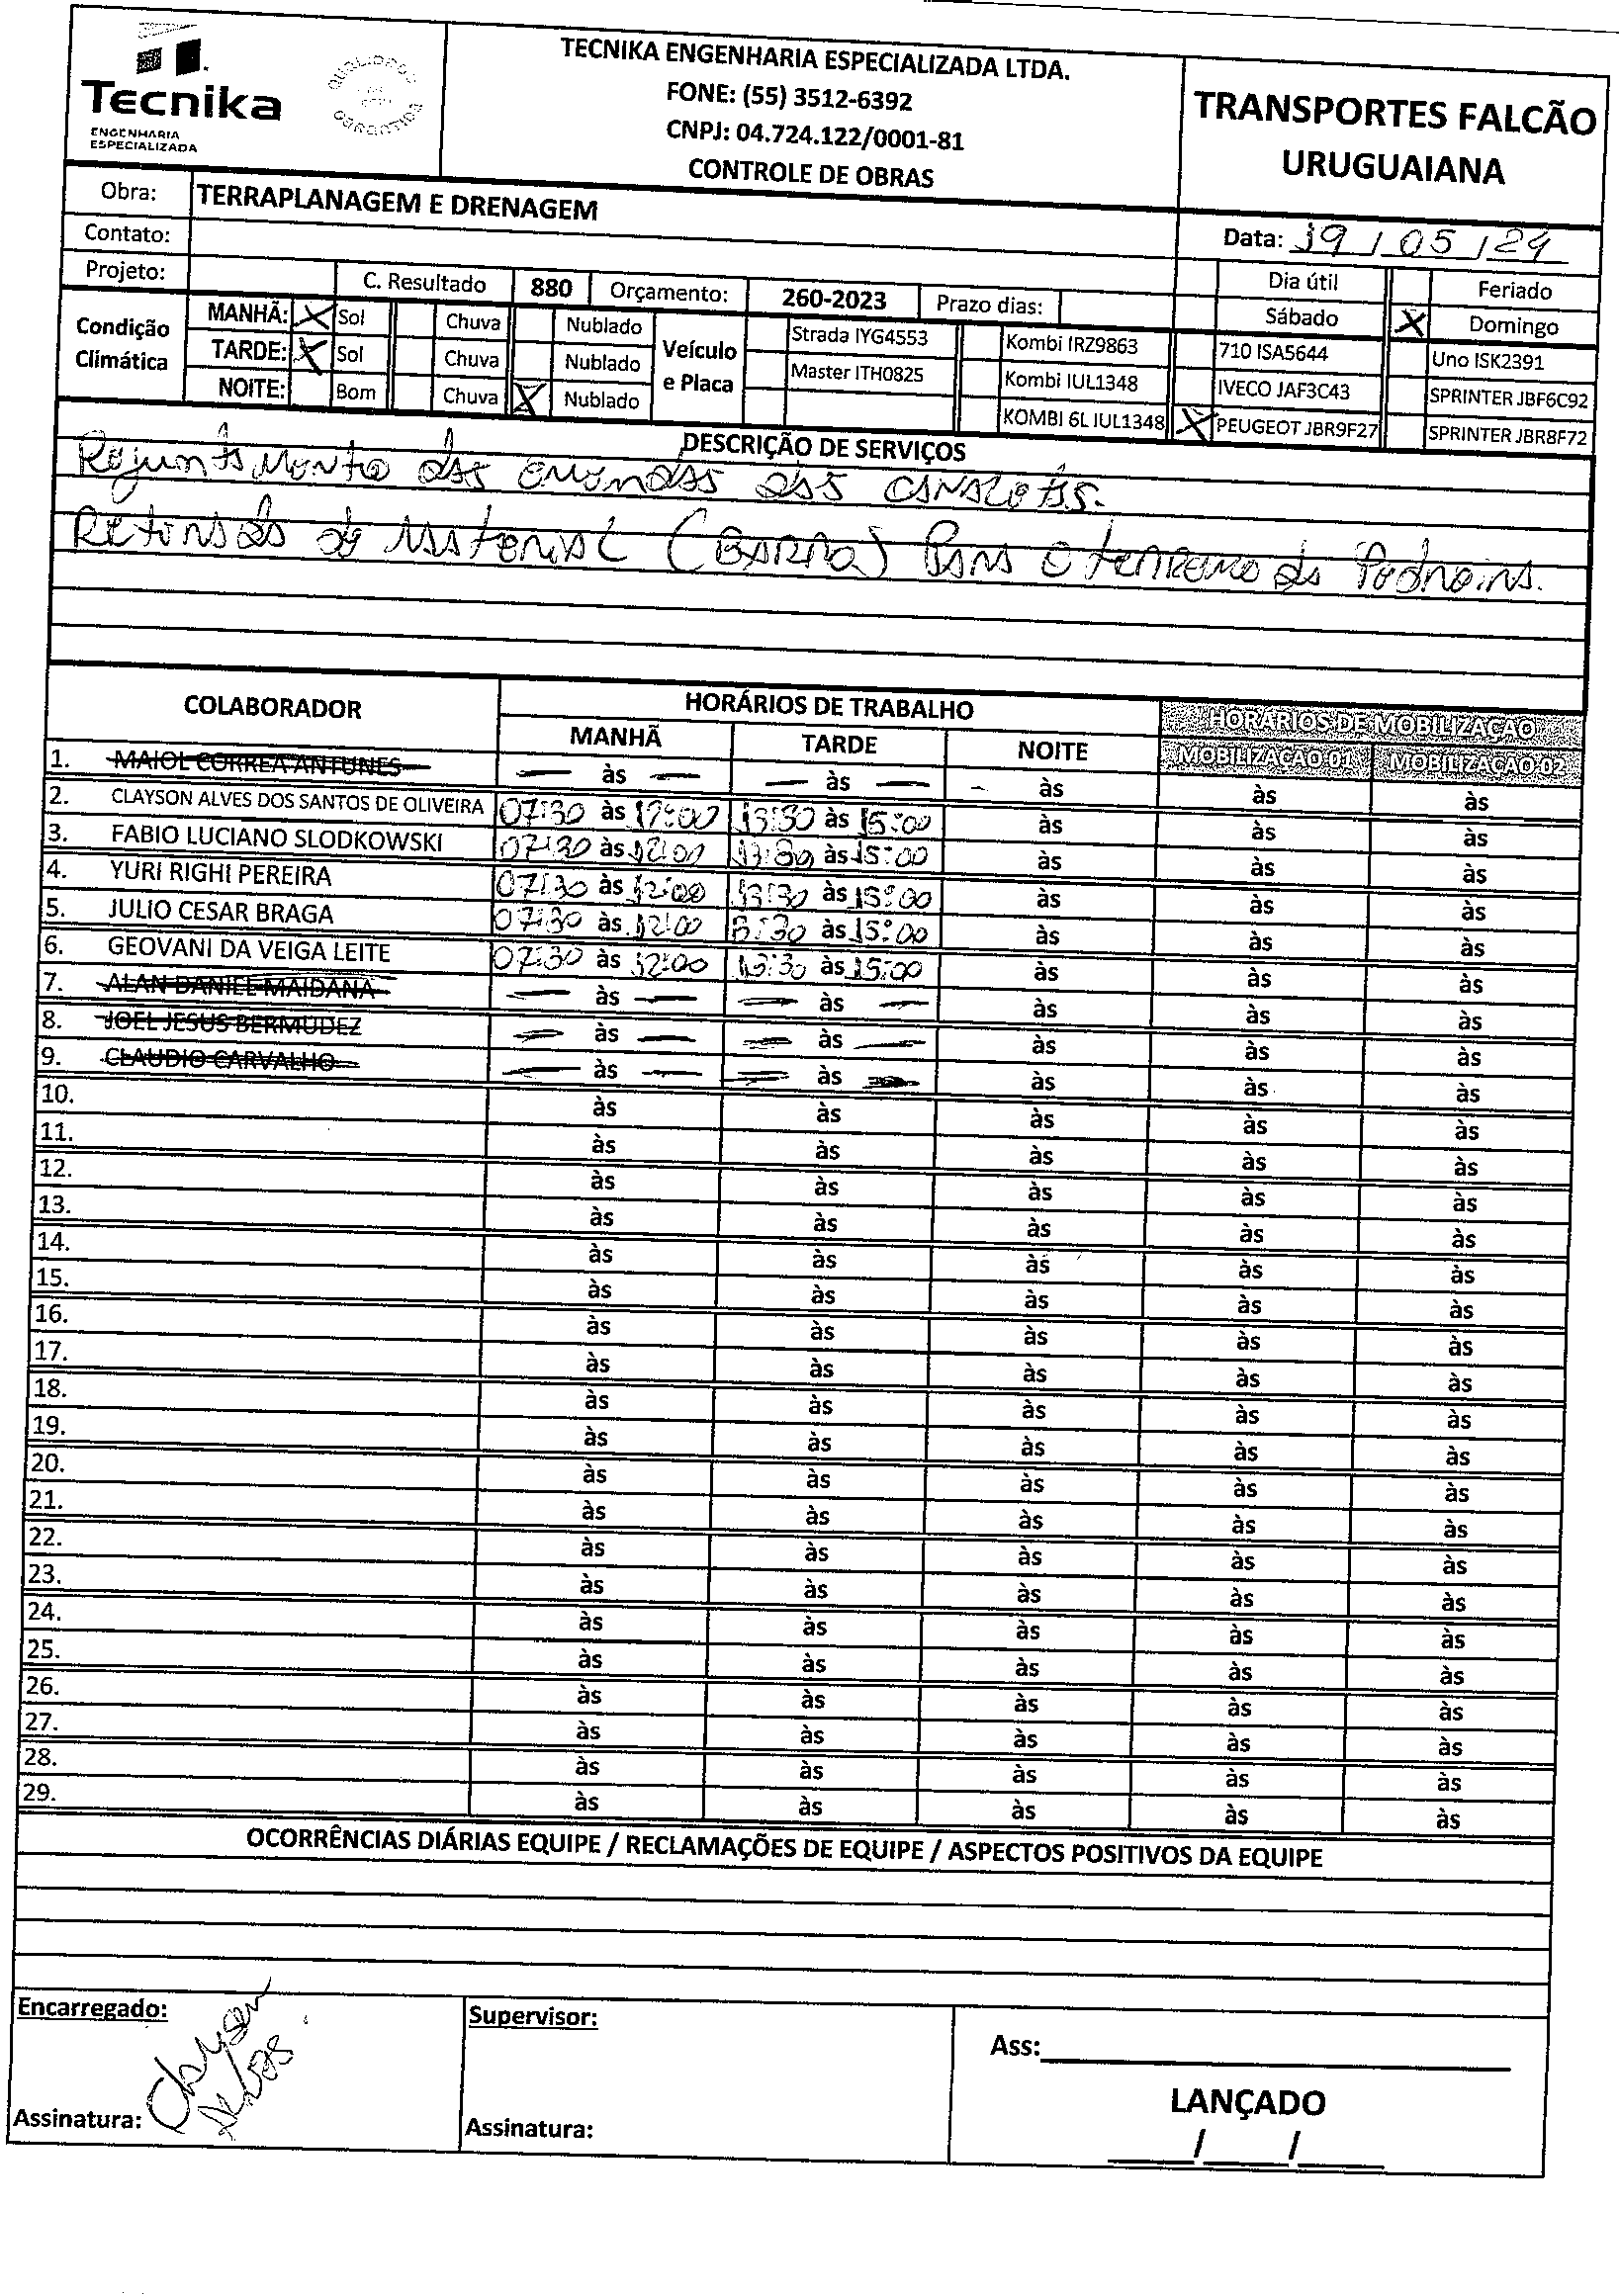 Tecnika
ENGENHARIA
ESPECIALIZADA
QUALIDADE
GARANTIDA
TECNIKA ENGENHARIA ESPECIALIZADA LTDA.
FONE: (55) 3512-6392
CNPJ: 04.724.122/0001-81
CONTROLE DE OBRAS
TRANSPORTES FALCÃO
URUGUAIANA
Obra: TERRAPLANAGEM E DRENAGEM
Contato:
Data: 19 / 05 / 24
Projeto: C. Resultado 880 Orçamento: 260-2023 Prazo dias: Dia útil Feriado
Sábado X Domingo
Condição Climática
MANHÃ: X Sol Chuva Nublado
TARDE: X Sol Chuva Nublado
NOITE: Bom Chuva X Nublado
Veículo e Placa
Strada IYG4553 Kombi IRZ9863 710 ISA5644 Uno ISK2391
Master ITH0825 Kombi IUL1348 IVECO JAF3C43 SPRINTER JBF6C92
KOMBI 6L IUL1348 X PEUGEOT JBR9F27 SPRINTER JBR8F72
DESCRIÇÃO DE SERVIÇOS
Rejuntamento das emendas das canaletas.
Retirada de Material (Barro) Para o terreno da Pedreira.
COLABORADOR HORÁRIOS DE TRABALHO HORÁRIOS DE MOBILIZAÇÃO
MANHÃ TARDE NOITE MOBILIZAÇÃO 01 MOBILIZAÇÃO 02
1. MAIOL CORREA ANTUNES — às — — às — - às às às
2. CLAYSON ALVES DOS SANTOS DE OLIVEIRA 07:30 às 12:00 13:30 às 15:00 às às às
3. FABIO LUCIANO SLODKOWSKI 07:30 às 12:00 13:30 às 15:00 às às às
4. YURI RIGHI PEREIRA 07:30 às 12:00 13:30 às 15:00 às às às
5. JULIO CESAR BRAGA 07:30 às 12:00 13:30 às 15:00 às às às
6. GEOVANI DA VEIGA LEITE 07:30 às 12:00 13:30 às 15:00 às às às
7. ALAN DANIEL MAIDANA — às — — às — às às às
8. JOEL JESUS BERMUDEZ — às — — às — às às às
9. CLAUDIO CARVALHO — às — — às — às às às
10. às às às às às
11. às às às às às
12. às às às às às
13. às às às às às
14. às às às às às
15. às às às às às
16. às às às às às
17. às às às às às
18. às às às às às
19. às às às às às
20. às às às às às
21. às às às às às
22. às às às às às
23. às às às às às
24. às às às às às
25. às às às às às
26. às às às às às
27. às às às às às
28. às às às às às
29. às às às às às
OCORRÊNCIAS DIÁRIAS EQUIPE / RECLAMAÇÕES DE EQUIPE / ASPECTOS POSITIVOS DA EQUIPE
Encarregado:
Clayson
Alves
Assinatura:
Supervisor:
Assinatura:
Ass:
LANÇADO
/ /